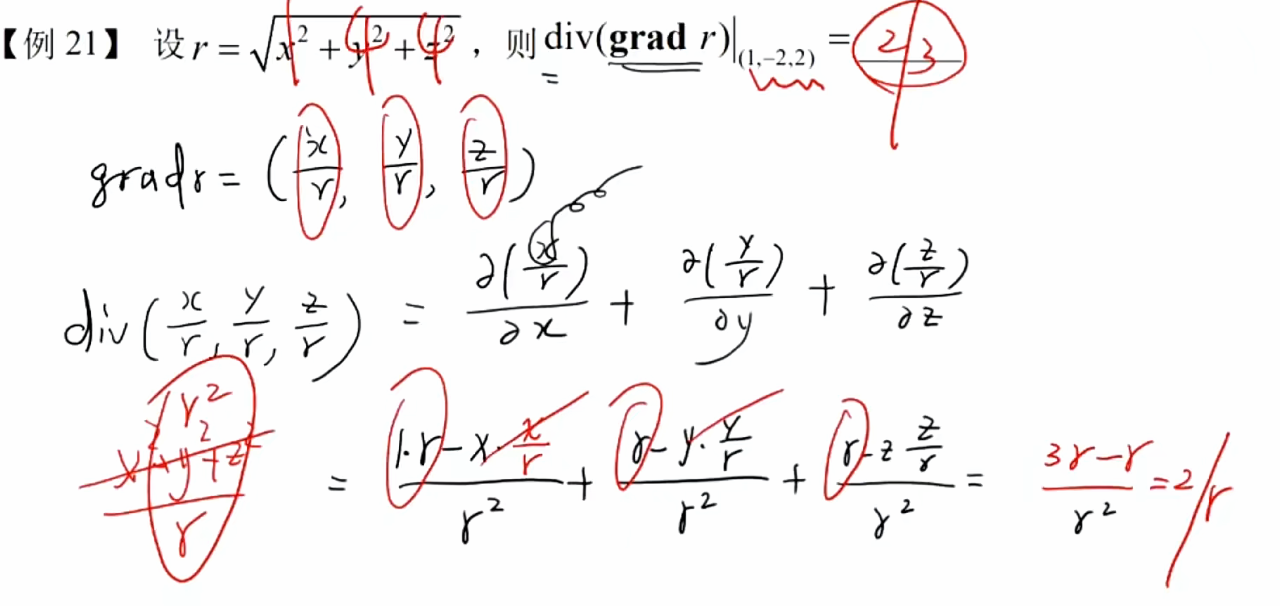 【例 21】 设 r = √(x² + y² + z²) ，则 div(grad r)|(1,−2,2) = 2/3
grad r = (x/r, y/r, z/r)
div(x/r, y/r, z/r) = ∂(x/r)/∂x + ∂(y/r)/∂y + ∂(z/r)/∂z
r²
x²+y²+z²/r = (1·r − x·x/r)/r² + (r − y·y/r)/r² + (r − z z/r)/r² = (3r − r)/r² = 2/r